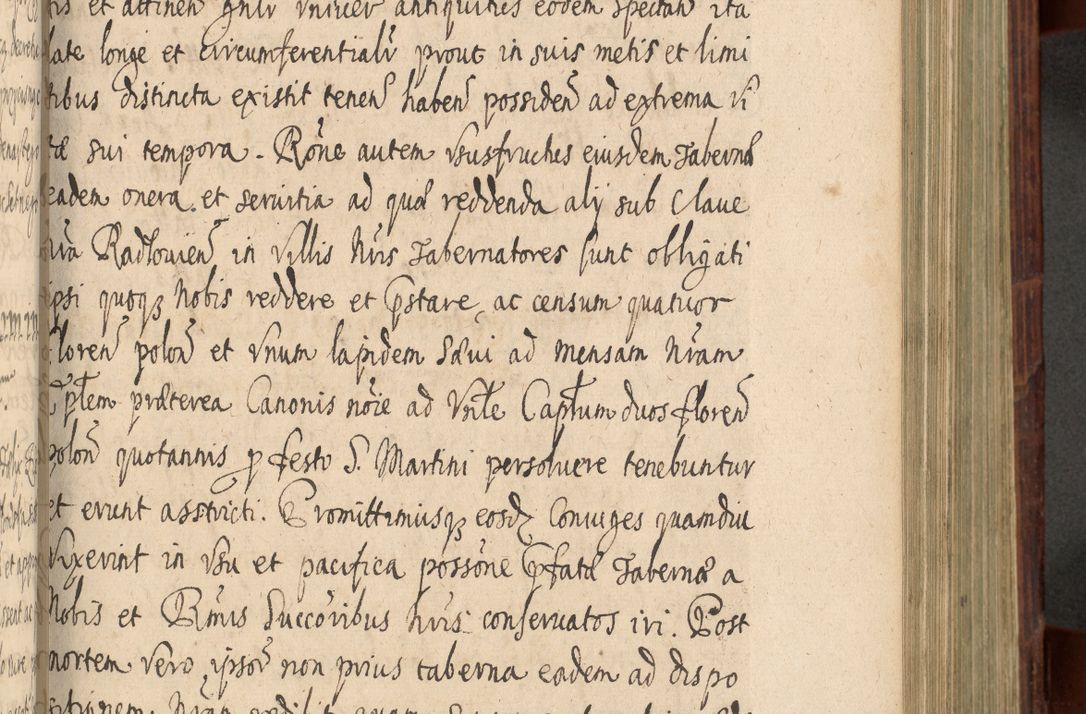 et attinen gnlr vniver antiquitus eodem spectan ita
late longe et circumferentialr prout in suis metis et limi
tibus distincta existit tenen haben possiden ad extrema vi
tæ sui tempora. Rone autem vsusfructus eiusdem Tabernæ
eadem onera et seruitia ad quæ reddenda alij sub Claue
nra Radlouien in villis nris Tabernatores sunt obligati
ipsi quoqz nobis reddere et pstare, ac censum quatuor
floren polon et vnum lapidem Sævi ad mensam nram
Eptem præterea Canonis noie ad Vnłe Captum duos floren
polon quotannis p festo S. Martini persoluere tenebuntur
et erunt asstricti. Promittimusqz eosdz Coniuges quamdiu
vixerint in vsu et pacifica possone pfatæ Tabernæ a
Nobis et Rmis Succoribus nris conseruatos iri. Post
mortem vero ipsor non prius taberna eadem ad dispo